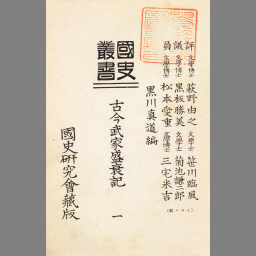 評議員
文學博士 萩野由之 文學士 笹川臨風
文學博士 黒板勝美 文學士 菊池謙二郎
文學博士 松本愛重 文學博士 三宅米吉
黒川真道編
國史叢書
古今武家盛衰記 一
國史研究會藏版